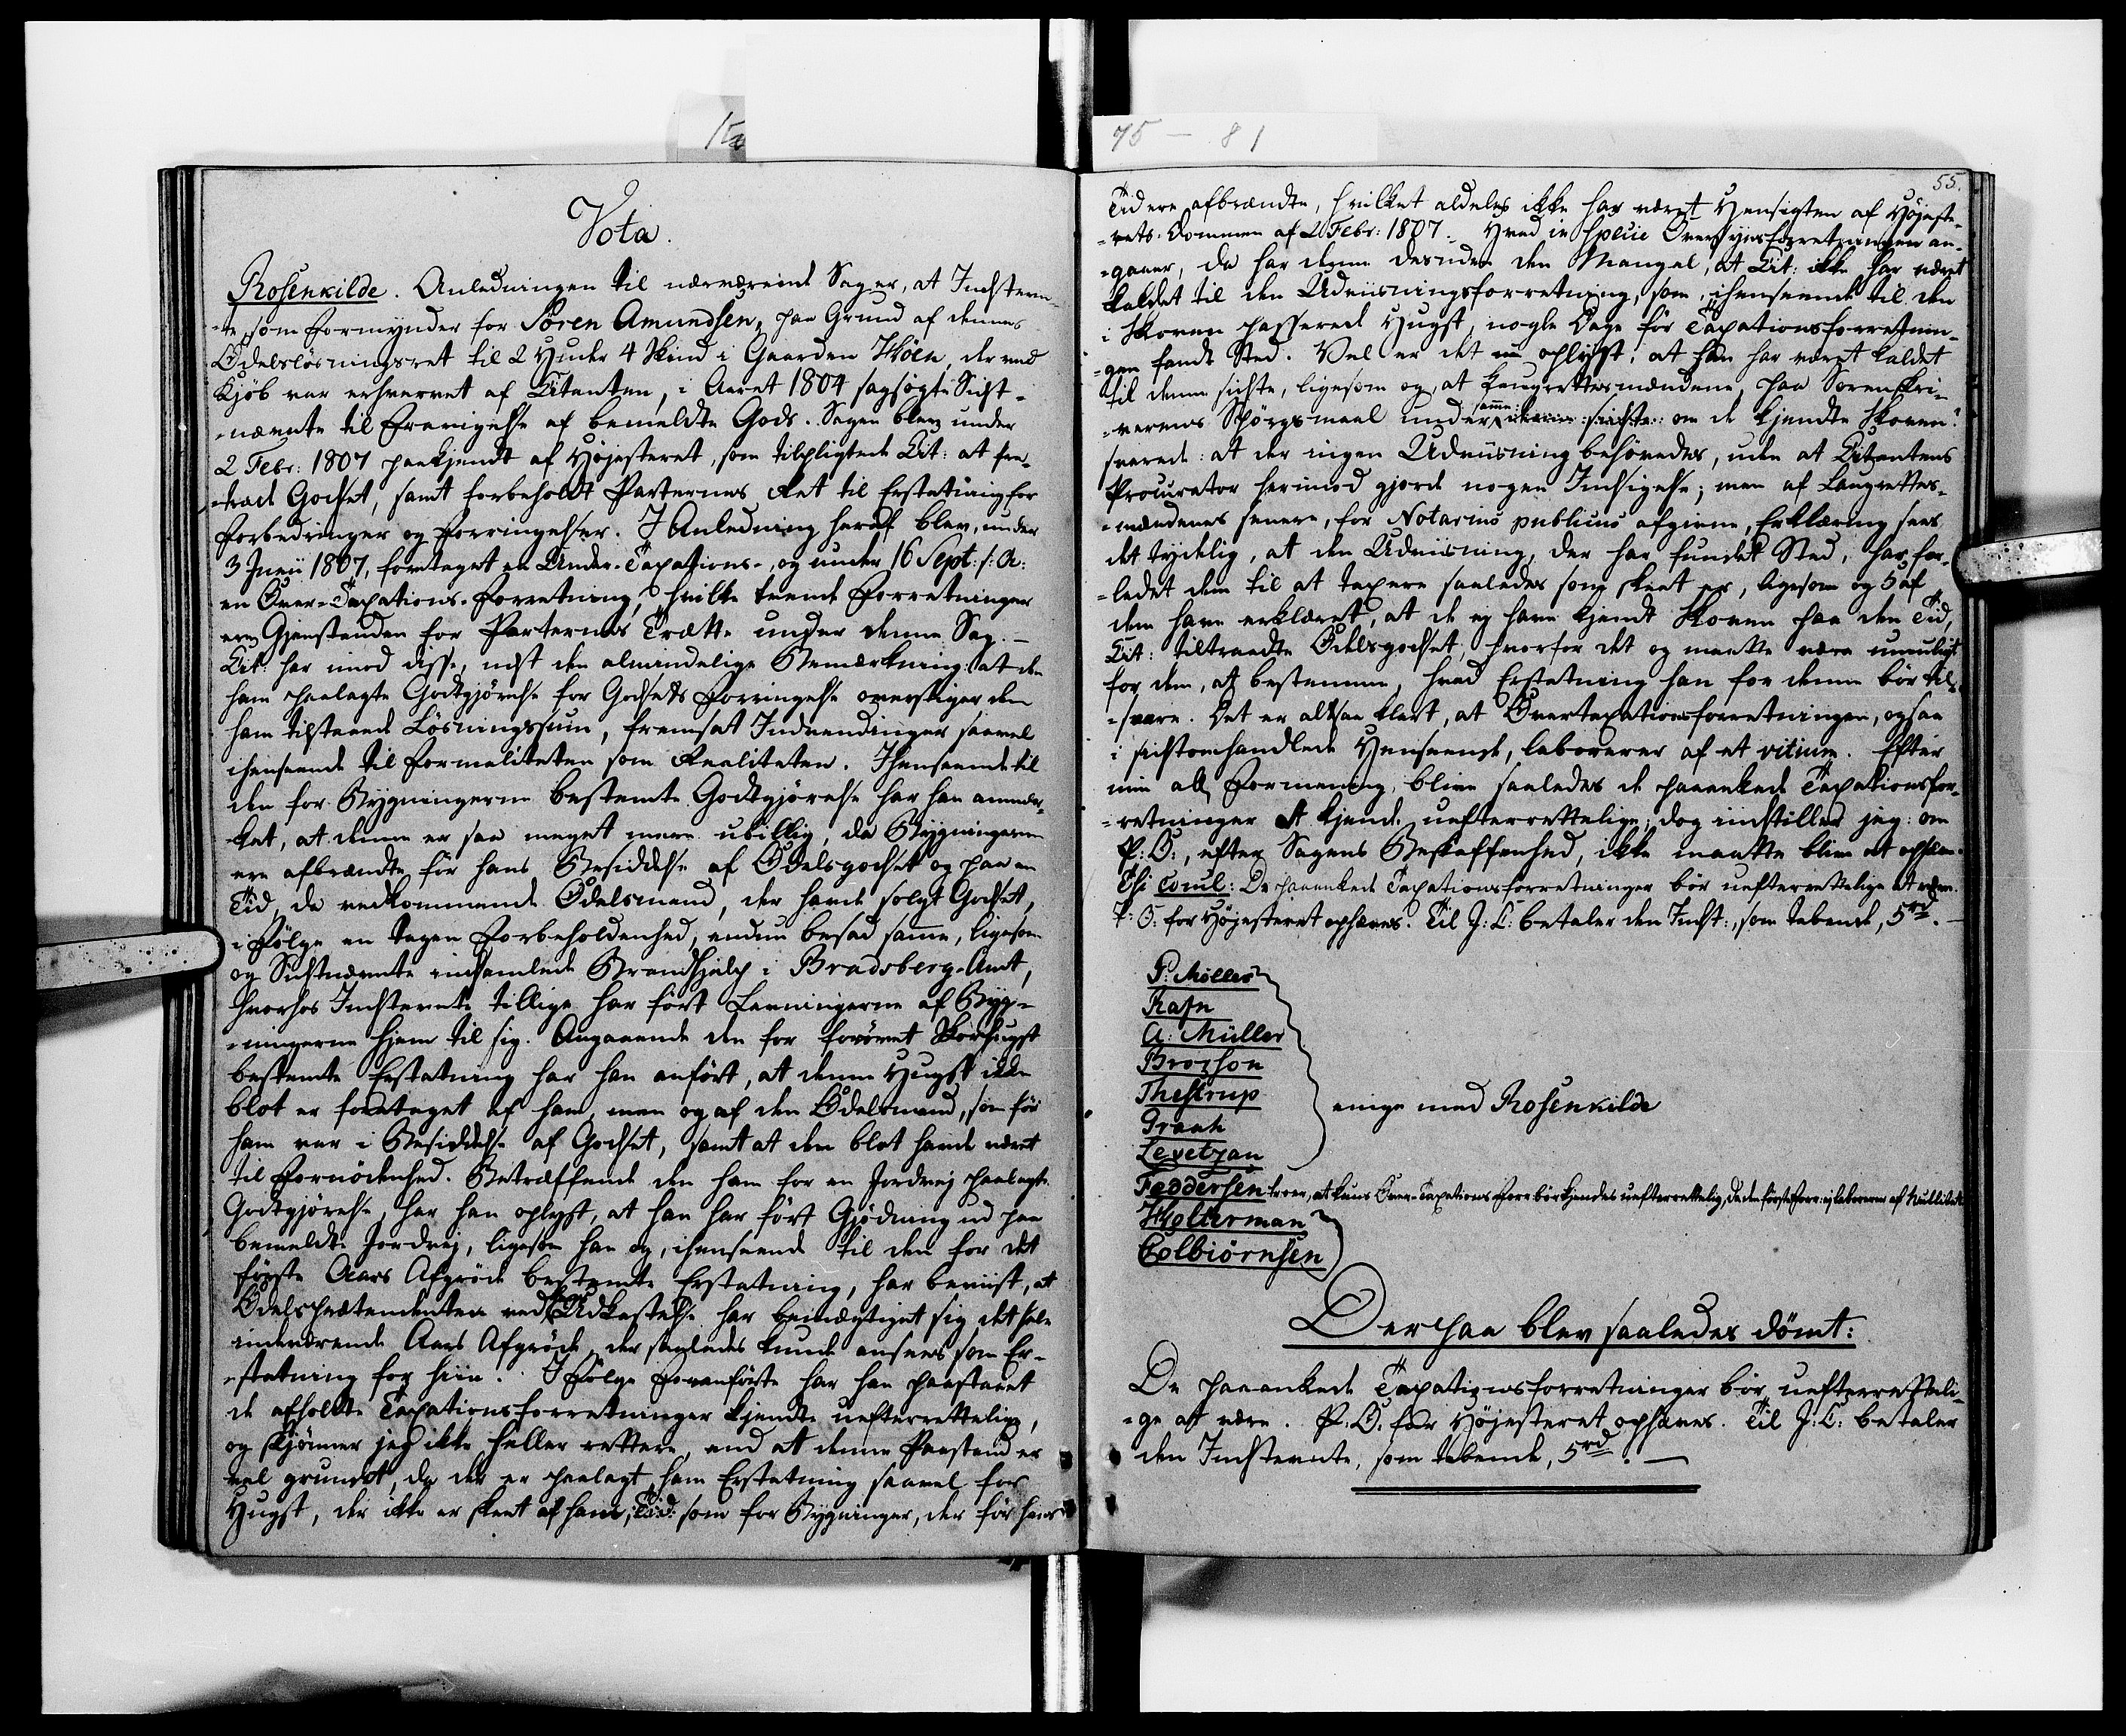 75 - 81
Vota.
Rosenkilde. Anledningen til nærværende Sag er, at Indstevn-
-te, som Formynder for Sören Amundsen, paa Grund af dennes
Ødelslösningsret til 2 Huder 4 Skind i Gaarden Höen, der ved
Kjöb var erhvervet af Citanten, i Aaret 1804 sagsögte Sidst-
-nævnte til Fravigelse af bemeldte Gods. Sagen blev under
2 Febr: 1807 paakjendt af Höjesteret, som tilpligtede Cit: at fra-
-træde Godset, samt forbeholdt Parternes Ret til Erstatning for
Forbedringer og Forringelser. I Anledning heraf blev, under
3 Junii 1807, foretaget en Under-Taxations-, og under 16 Sept: s: A:
en Over-Taxations-Forretning, hvilke tvende Forretninger
ere Gjenstanden for Parternes Trætte under denne Sag. -
Cit: har imod disse, næst den almindelige Bemærkning: at den
ham paalagte Godtgjörelse for Godsets Forringelse overstiger den
ham tilstaaede Lösningssum, fremsat Indvendinger saavel
ihenseende til Formaliteten som Realiteten. Ihenseende til
den for Bygningerne bestemte Godtgjörelse har han anmær-
-ket, at denne er saa meget mere ubillig, da Bygningerne
ere afbrændte för hans Besiddelse af Ødelsgodset og paa en
Tid, da vedkommende Ødelsmand, der havde solgt Godset,
i Fölge en tagen Forbeholdenhed, endnu besad samme, ligesom
og Sidstnævnte indsamlede Brandhjelp i Bradsberg-Amt,
hvorhos Indstevnte tillige har fört Levningerne af Byg-
-ningerne hjem til sig. Angaaende den for forövet Skovhugst
bestemte Erstatning har han anfört, at denne Hugst ikke
blot er foretaget af ham, men og af den Ødelsmand, som för
ham var i Besiddelse af Godset, samt at den blot havde været
til Fornödenhed. Betræffende den ham for en Jordvej paalagte
Godtgjörelse, har han oplyst, at han har fört Gjödning ud paa
bemeldte Jordvej, ligesom han og, ihenseende til den for det
förste Aars Afgröde bestemte Erstatning, har beviist, at
Ødelsprætendenten ved Udkastelse har bemægtiget sig det hele
indeværende Aars Afgröde, der saaledes kunde ansees som Er-
-statning for hiin. I Fölge Foranförte har han paastaaet
de afholdte Taxationsforretninger kjendte uefterrettelige,
og skjönner jeg ikke heller rettere, end at denne Paastand er
vel grundet, da der er paalagt ham Erstatning saavel for
Hugst, der ikke er skeet af ham, som for Bygninger, der för hans
55.
Tid ere afbrændte, hvilket aldeles ikke har været Hensigten af Höjeste-
-rets-Dommen af 2 Febr: 1807. Hvad in specie Oversynsforretningen an-
-gaaer, da har denne desuden den Mangel, at Cit: ikke har været
kaldet til den Udviisningsforretning, som, ihenseende til den
i Skoven passerede Hugst, nogle Dage för Taxationsforretnin-
-gen fandt Sted. Vel er det oplyst, at han har været kaldet
til denne sidste, ligesom og, at Laugrettesmændene, paa Sorenskri-
-verens Spörgsmaal under samme: om de kjendte Skoven?
svarede: at der ingen Udviisning behövedes, uden at Citantens
Procurator herimod gjorde nogen Indsigelse; men af Laugrettes-
-mændenes senere, for Notarius publicus afgivne, Erklæring sees
det tydelig, at den Udviisning, der har fundet Sted, har for-
-ledet dem til at taxere saaledes som skeet er, ligesom og 5 af
dem have erklæret, at de ej have kjendt Skoven paa den Tid,
Cit: tiltraadte Ødelsgodset, hvorfor det og maatte være umuligt
for dem, at bestemme, hvad Erstatning han for denne bör til-
-svare. Det er altsaa klart, at Overtaxationsforretningen, ogsaa
i sidstomhandlede Henseende, laborerer af et vitium. Efter
min Formening, blive saaledes de paaankede Taxationsfor-
-retninger at kjende uefterrettelige; dog indstiller jeg: om
P: O:, efter Sagens Beskaffenhed, ikke maatte blive at ophæve.
Thi concl: De paaankede Taxationsforretninger bör uefterrettelige at være.
P: O: for Höjesteret ophæves. Til J: C: betaler den Indst:, som tabende, 5 rd. -
P: Möller
Rafn
A: Müller
Brorson
Thestrup
Graah
Levetzau
enige med Rosenkilde
Feddersen troer, at kuns Over-Taxations-Forr: bör kjendes uefterrettelig, da den förste Forr: ej laborerer af Nullitet.
Holterman
Colbiörnsen
Derpaa blev saaledes dömt:
De paaankede Taxationsforretninger bör uefterretteli-
-ge at være. P: O: for Höjesteret ophæves. Til J: C: betaler
den Indstevnte, som tabende, 5 rd. -